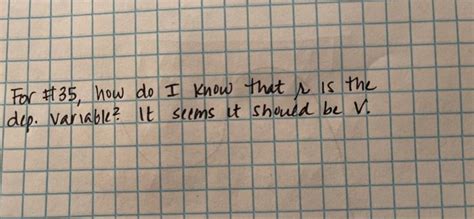 For #35, how do I know that r is the
dep. variable? It seems it should be V.